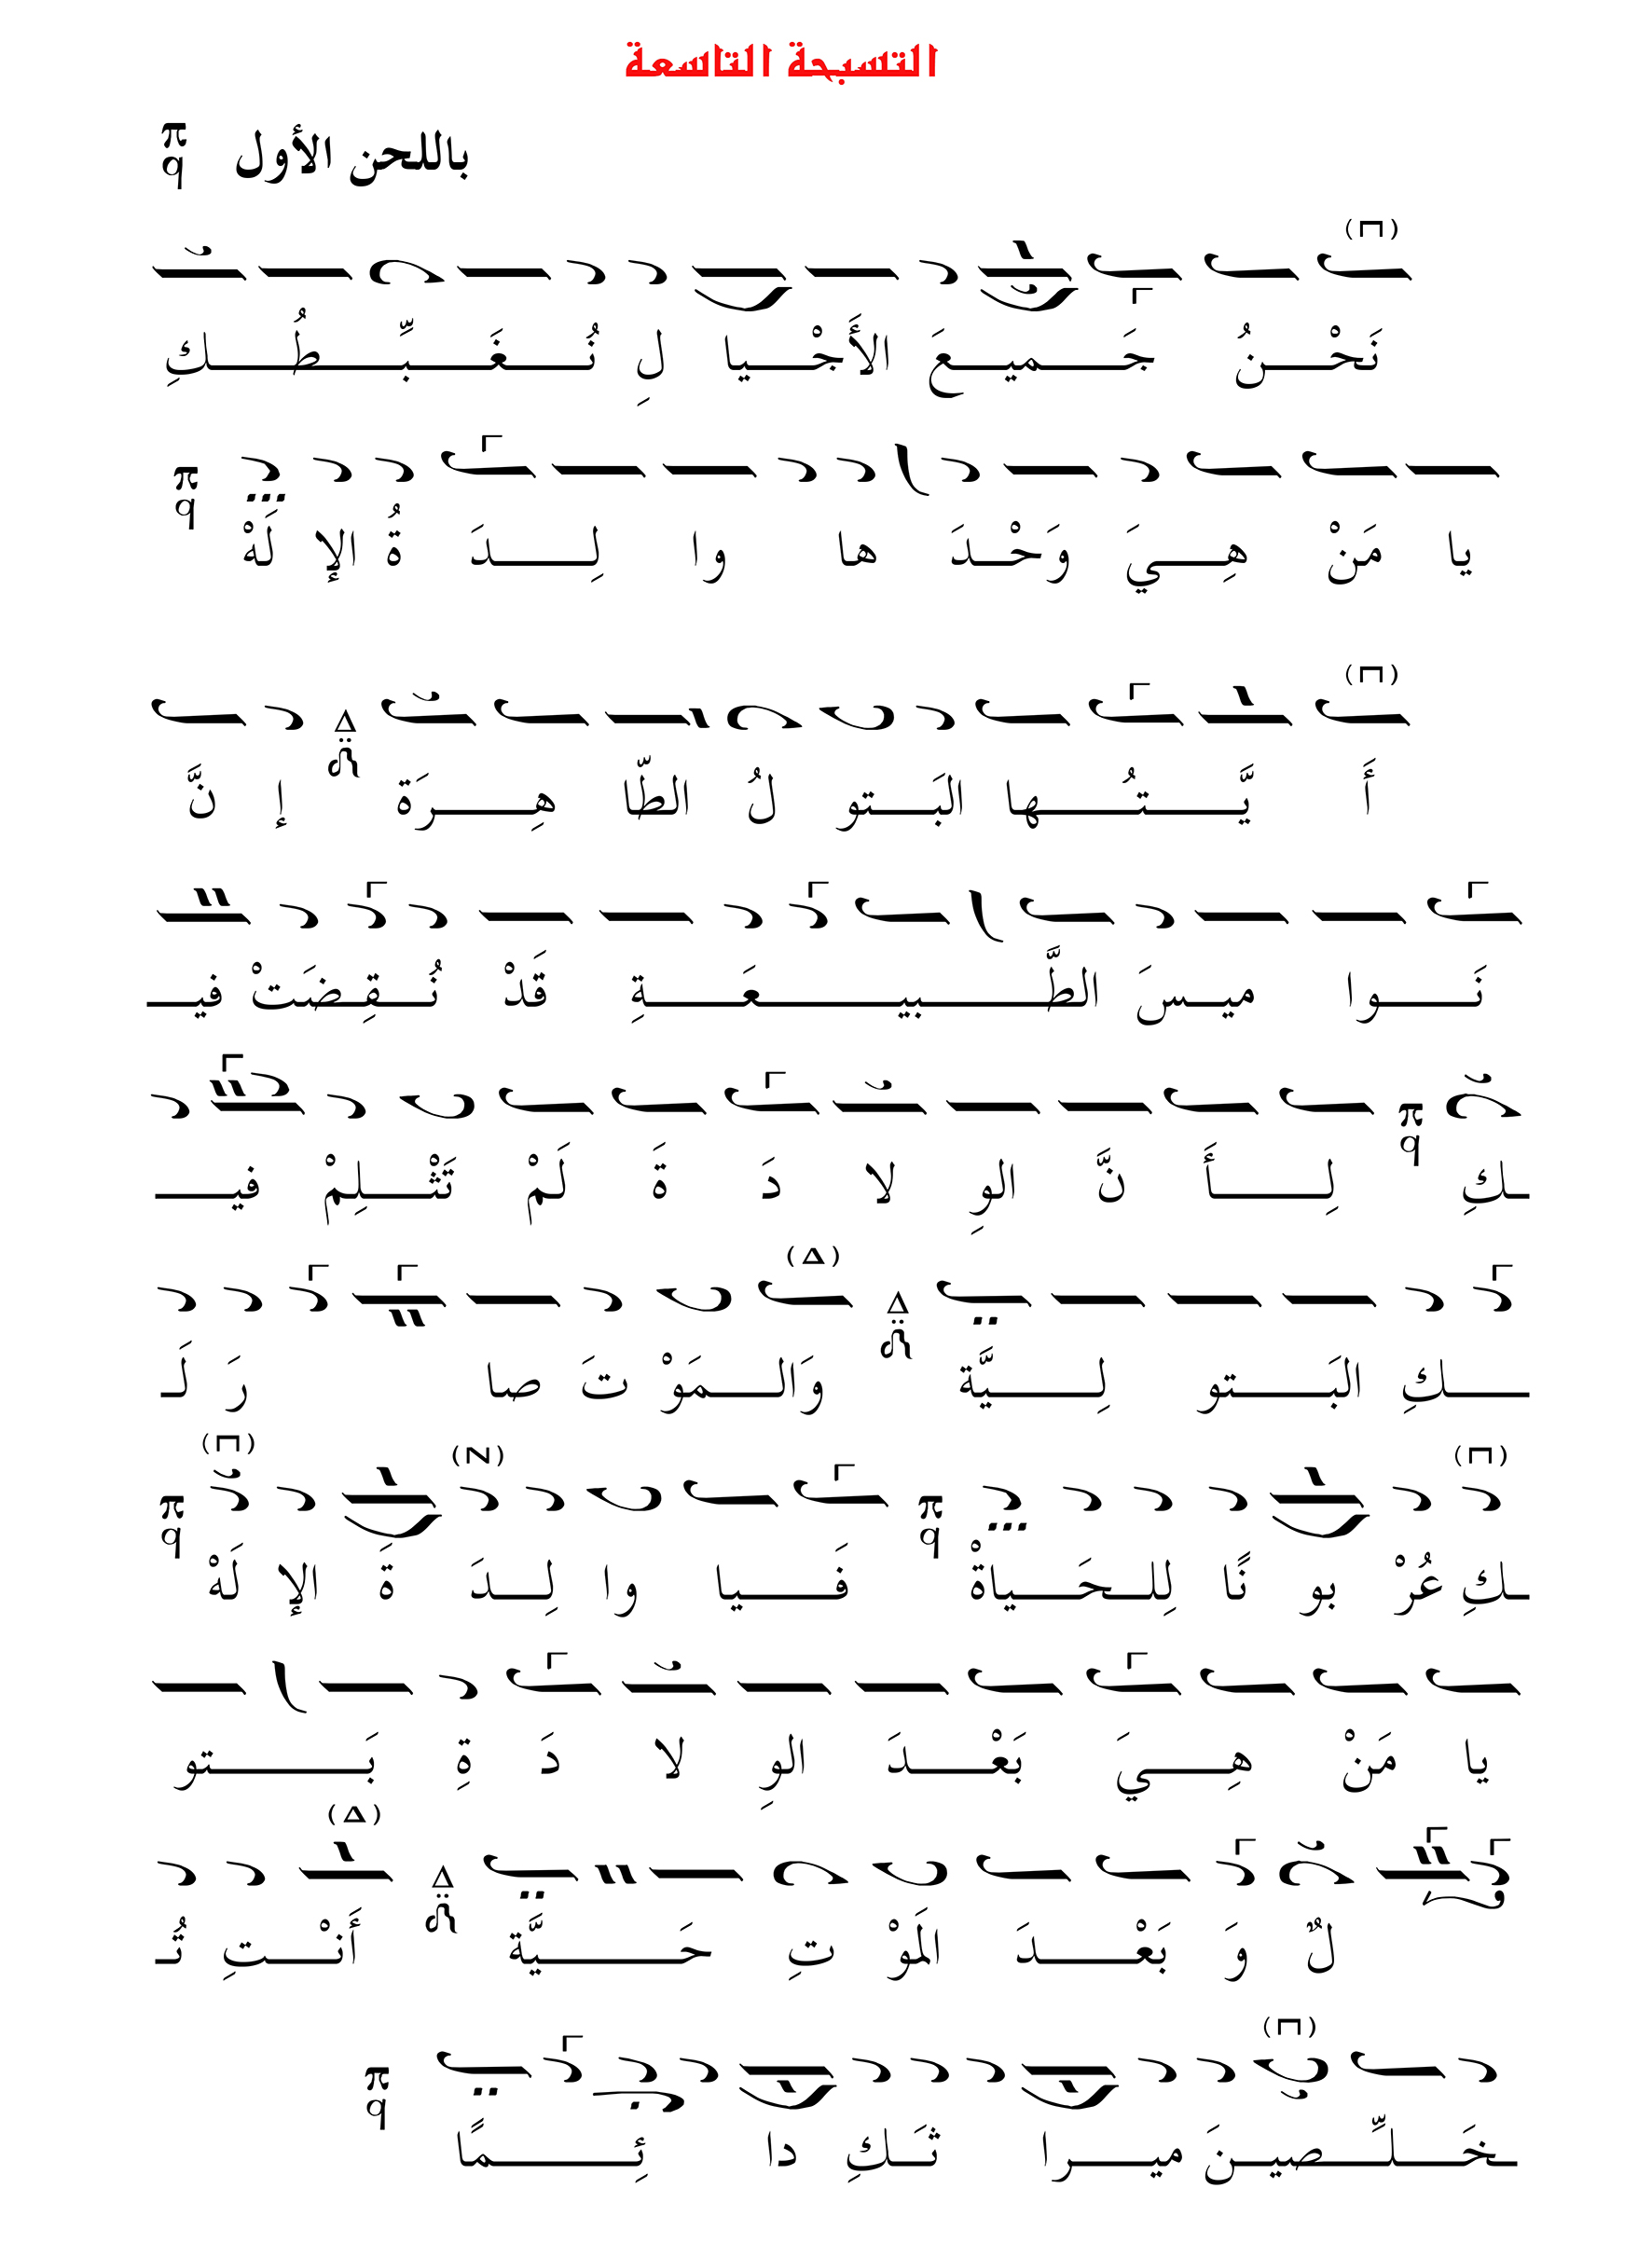 التسبحة التاسعة
باللحن الأول π q
(Π)
نَحْـنُ جَـميـعَ الأَجْـيا لِ نُـغَـبِّـطُـكِ
π q
يا مَنْ هِـيَ وَحْـدَ ها وا لِـدَ ةُ الإ لَهْ
(Π)
أَ يَّـتُـها البَـتو لُ الطّا هِـرَة Δ إ نَّ
نَـوا ميـسَ الطَّـبيـعَـةِ قَدْ نُـقِـضَتْ فيـ
π q
ـكِ لِـأَ نَّ الوِ لا دَ ةَ لَمْ تَثْـلِمْ فيـ
(Δ) Δ
ـكِ البَـتو لِـيَّة وَالـمَوْ تَ صا رَ لَـ
(Π) π q (N) (Π) π q
ـكِ عُرْ بو نًا لِلـحَـياةْ فَـيا وا لِـدَ ةَ الإ لَهْ
يا مَنْ هِـيَ بَعْـدَ الوِ لا دَ ةِ بَـتو
Δ (Δ)
لٌ وَ بَعْـدَ المَوْ تِ حَـيَّة أَنْـتِ تُـ
(Π) π q
ـخَـلِّـصيـنَ ميـرا ثَـكِ دا ئِـمًا